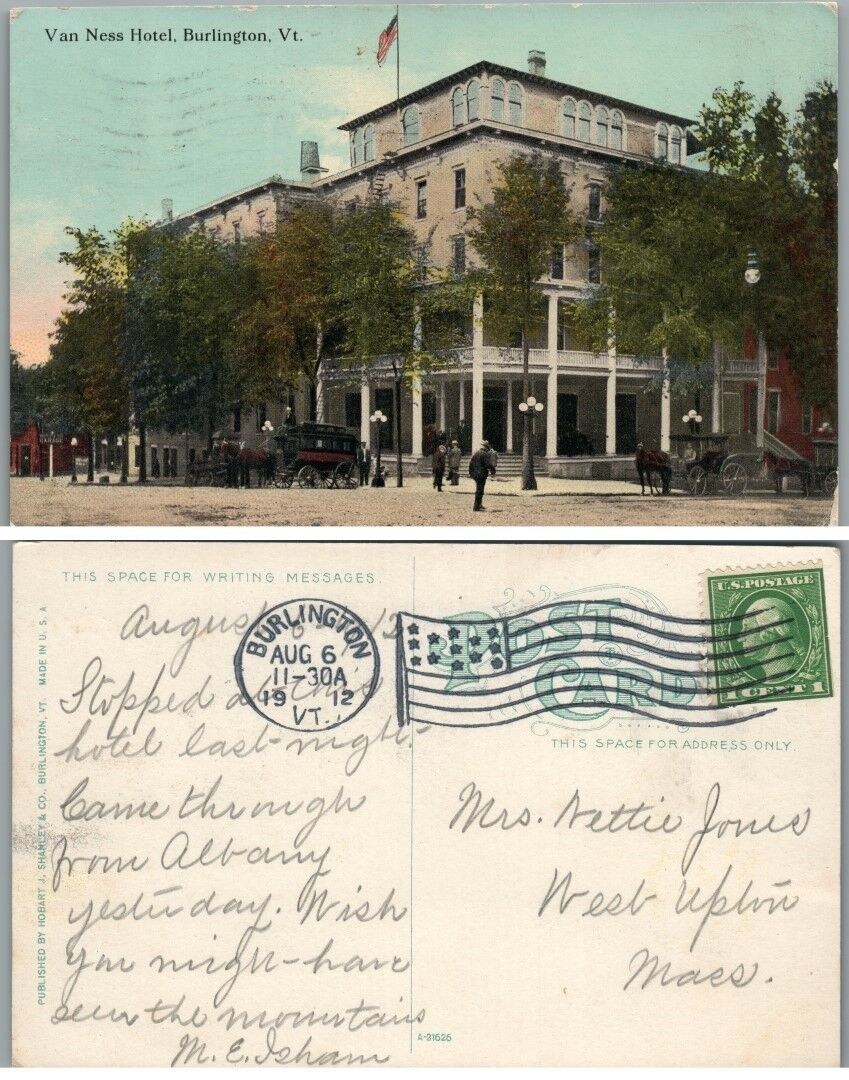 Van Ness Hotel, Burlington, Vt.
GARAGE
THIS SPACE FOR WRITING MESSAGES.
POST
CARD
THIS SPACE FOR ADDRESS ONLY.
U.S. POSTAGE
1 CENT 1
BURLINGTON
AUG 6
11-30A
19 12
VT.
PUBLISHED BY HOBART J. SHANLEY & CO., BURLINGTON, VT. MADE IN U. S. A
August 6 - 12
Stopped at this
hotel last night.
Came through
from Albany
yesterday. Wish
you might have
seen the mountains
M. E. Isham
Mrs. Nettie Jones
West Upton
Mass.
A-21626